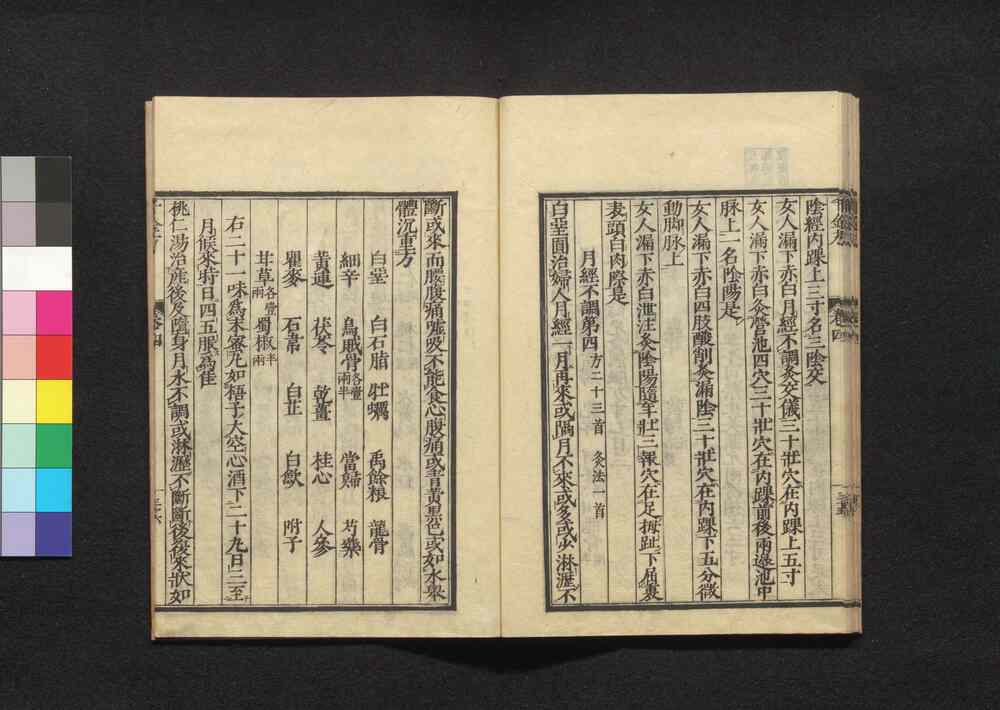 陰經內踝上三寸名三陰交
女人漏下赤白月經不調灸交儀三十壯穴在內踝上五寸
女人漏下赤白灸營池四穴三十壯穴在內踝前後兩邊池中
脉上一名陰陽是
女人漏下赤白四肢酸削灸漏陰三十壯穴在內踝下五分微
動脚脉上
女人漏下赤白泄注灸陰陽隨年壯三報穴在足拇趾下屈裏
表頭白肉際是
月經不調第四 方二十三首 灸法一首
白堊圓治婦人月經一月再來或隔月不來或多或少淋瀝不
斷或來而腰腹痛噓吸不能食心腹痛或青黃黑色或如水舉
體沉重方
白堊 白石脂 牡蠣 禹餘粮 龍骨
細辛 烏賊骨各壹兩半 當歸 芍藥
黃連 茯苓 乾薑 桂心 人參
瞿麥 石韋 白芷 白歛 附子
甘草各壹兩 蜀椒半兩
右二十一味爲末蜜丸如梧子大空心酒下二十丸日三至
月候來時日四五服爲佳
桃仁湯治產後及墮身月水不調或淋瀝不斷斷後復來狀如
卷四
三十六